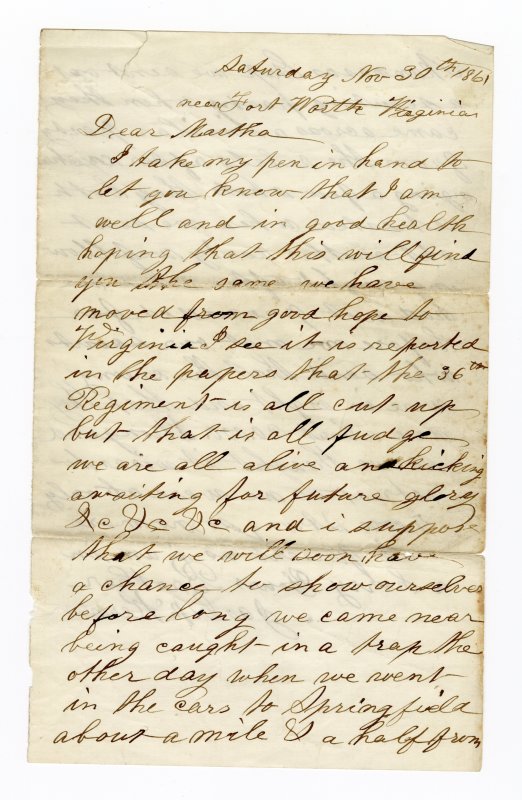 Saturday Nov 30th/1861
near Fort Worth Virginia
Dear Martha
I take my pen in hand to
let you know that I am
well and in good health
hoping that this will find
you the same we have
moved from good hope to
Virginia I see it is reported
in the papers that the 36th
Regiment is all cut up
but that is all fudge
we are all alive and kicking
awaiting for future glory
&c &c &c and i suppose
that we will soon have
a chance to show ourselves
before long we came near
being caught in a trap the
other day when we went
in the cars to Springfield
about a mile & a half from